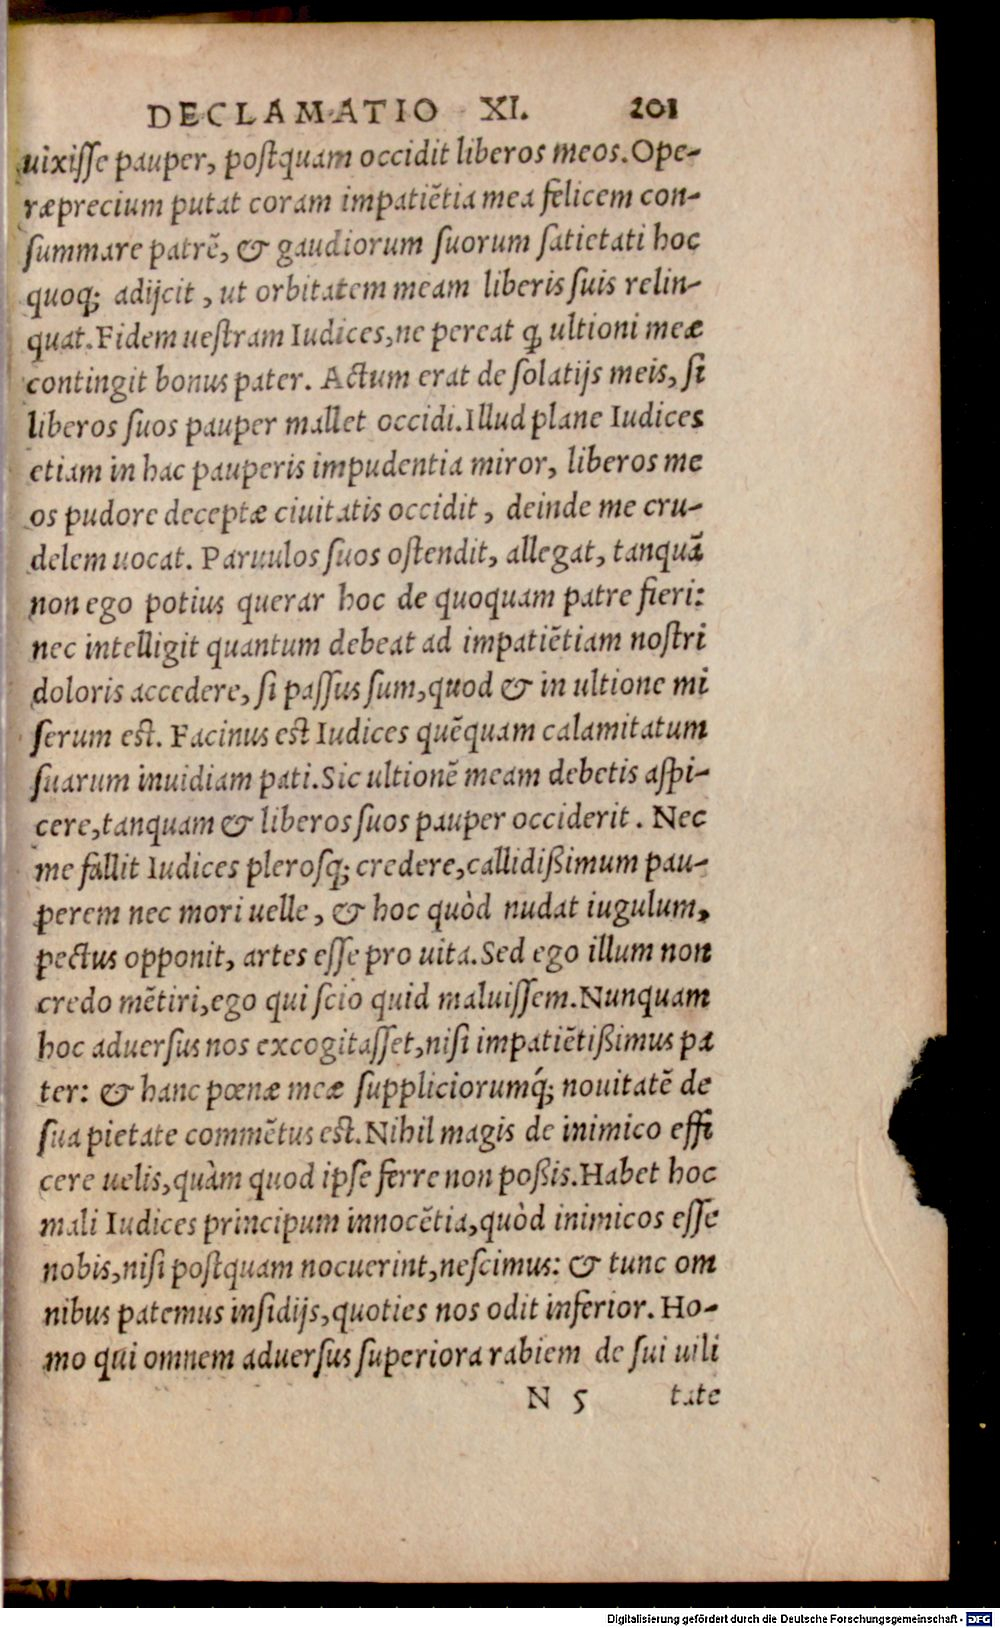 DECLAMATIO XI. 201
uixisse pauper, postquam occidit liberos meos. Ope-
ræprecium putat coram impatiẽtia mea felicem con-
summare patrẽ, & gaudiorum suorum satietati hoc
quoq; adijcit, ut orbitatem meam liberis suis relin-
quat. Fidem uestram Iudices, ne pereat ꝙ ultioni meæ
contingit bonus pater. Actum erat de solatijs meis, si
liberos suos pauper mallet occidi. Illud plane Iudices
etiam in hac pauperis impudentia miror, liberos me
os pudore deceptæ ciuitatis occidit, deinde me cru-
delem uocat. Paruulos suos ostendit, allegat, tanquã
non ego potius querar hoc de quoquam patre fieri:
nec intelligit quantum debeat ad impatiẽtiam nostri
doloris accedere, si passus sum, quod & in ultione mi
serum est. Facinus est Iudices quẽquam calamitatum
suarum inuidiam pati. Sic ultionẽ meam debetis aspi-
cere, tanquam & liberos suos pauper occiderit. Nec
me fallit Iudices plerosq; credere, callidißimum pau-
perem nec mori uelle, & hoc quòd nudat iugulum,
pectus opponit, artes esse pro uita. Sed ego illum non
credo mẽtiri, ego qui scio quid maluissem. Nunquam
hoc aduersus nos excogitasset, nisi impatiẽtißimus pa
ter: & hanc pœnæ meæ suppliciorumq́; nouitatẽ de
sua pietate commẽtus est. Nihil magis de inimico effi
cere uelis, quàm quod ipse ferre non poßis. Habet hoc
mali Iudices principum innocẽtia, quòd inimicos esse
nobis, nisi postquam nocuerint, nescimus: & tunc om
nibus patemus insidijs, quoties nos odit inferior. Ho-
mo qui omnem aduersus superiora rabiem de sui uili
N 5 tate
Digitalisierung gefördert durch die Deutsche Forschungsgemeinschaft - DFG